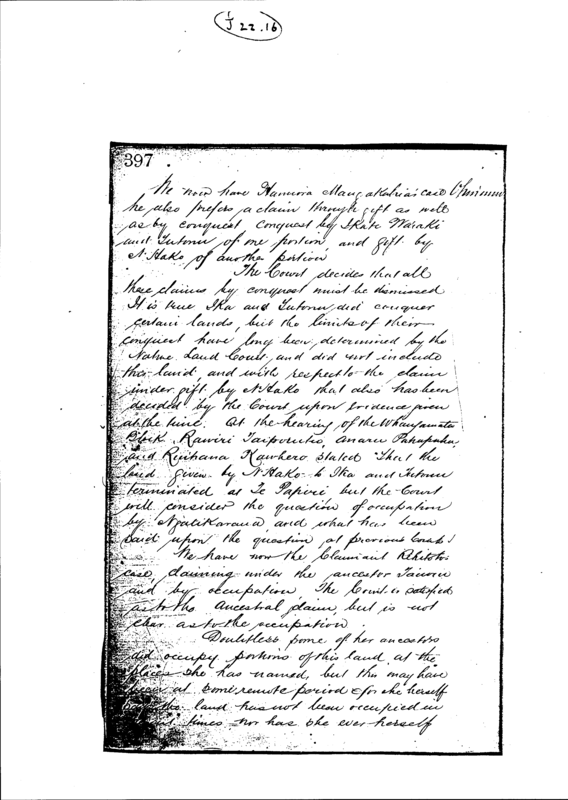 J 22.16
397
We now have Hamuora Mangakahia's case
he also prefers a claim through gift as well
as by conquest conquest by Ikate Waraki
and Tutonu of one portion and gift by
N. Hako of another portion
The Court decides that all
these claims by conquest must be dismissed
It is true Ika and Tutonu did conquer
certain lands, but the limits of their
conquest have long been determined by the
Native Land Court, and did not include
this land, and with respect to the claim
under gift by N. Hako that also has been
decided by the Court upon evidence given
at the time. At the hearing of the Whangamata
Block Rawiri Taiporutu, Anaru
and Reihana Kawhero stated "That the
land given by N. Hako to Ika and Tutonu
terminated at Te Papiri" but the Court
will consider the question of occupation
by Ngatikaraua, and what has been
said upon the question at previous Courts
We have now the Claimant
case, claiming under the ancestor
and by occupation. The Court is satisfied
as to the ancestral claim, but is not
clear as to the occupation.
Doubtless some of her ancestors
did occupy portions of this land at the
places she has named, but this may have
been at some remote period & for she herself
says the land has not been occupied in
times nor has she ever herself